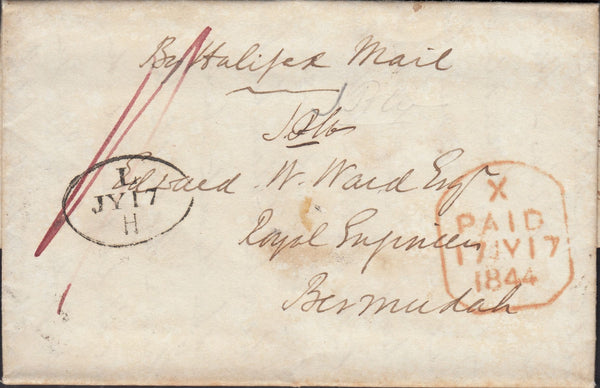 By Halifax Mail
Edward W. Ward Esqr
Royal Engineers
Bermudah
L
JY 17
H
X
PAID
17 JY 17
1844